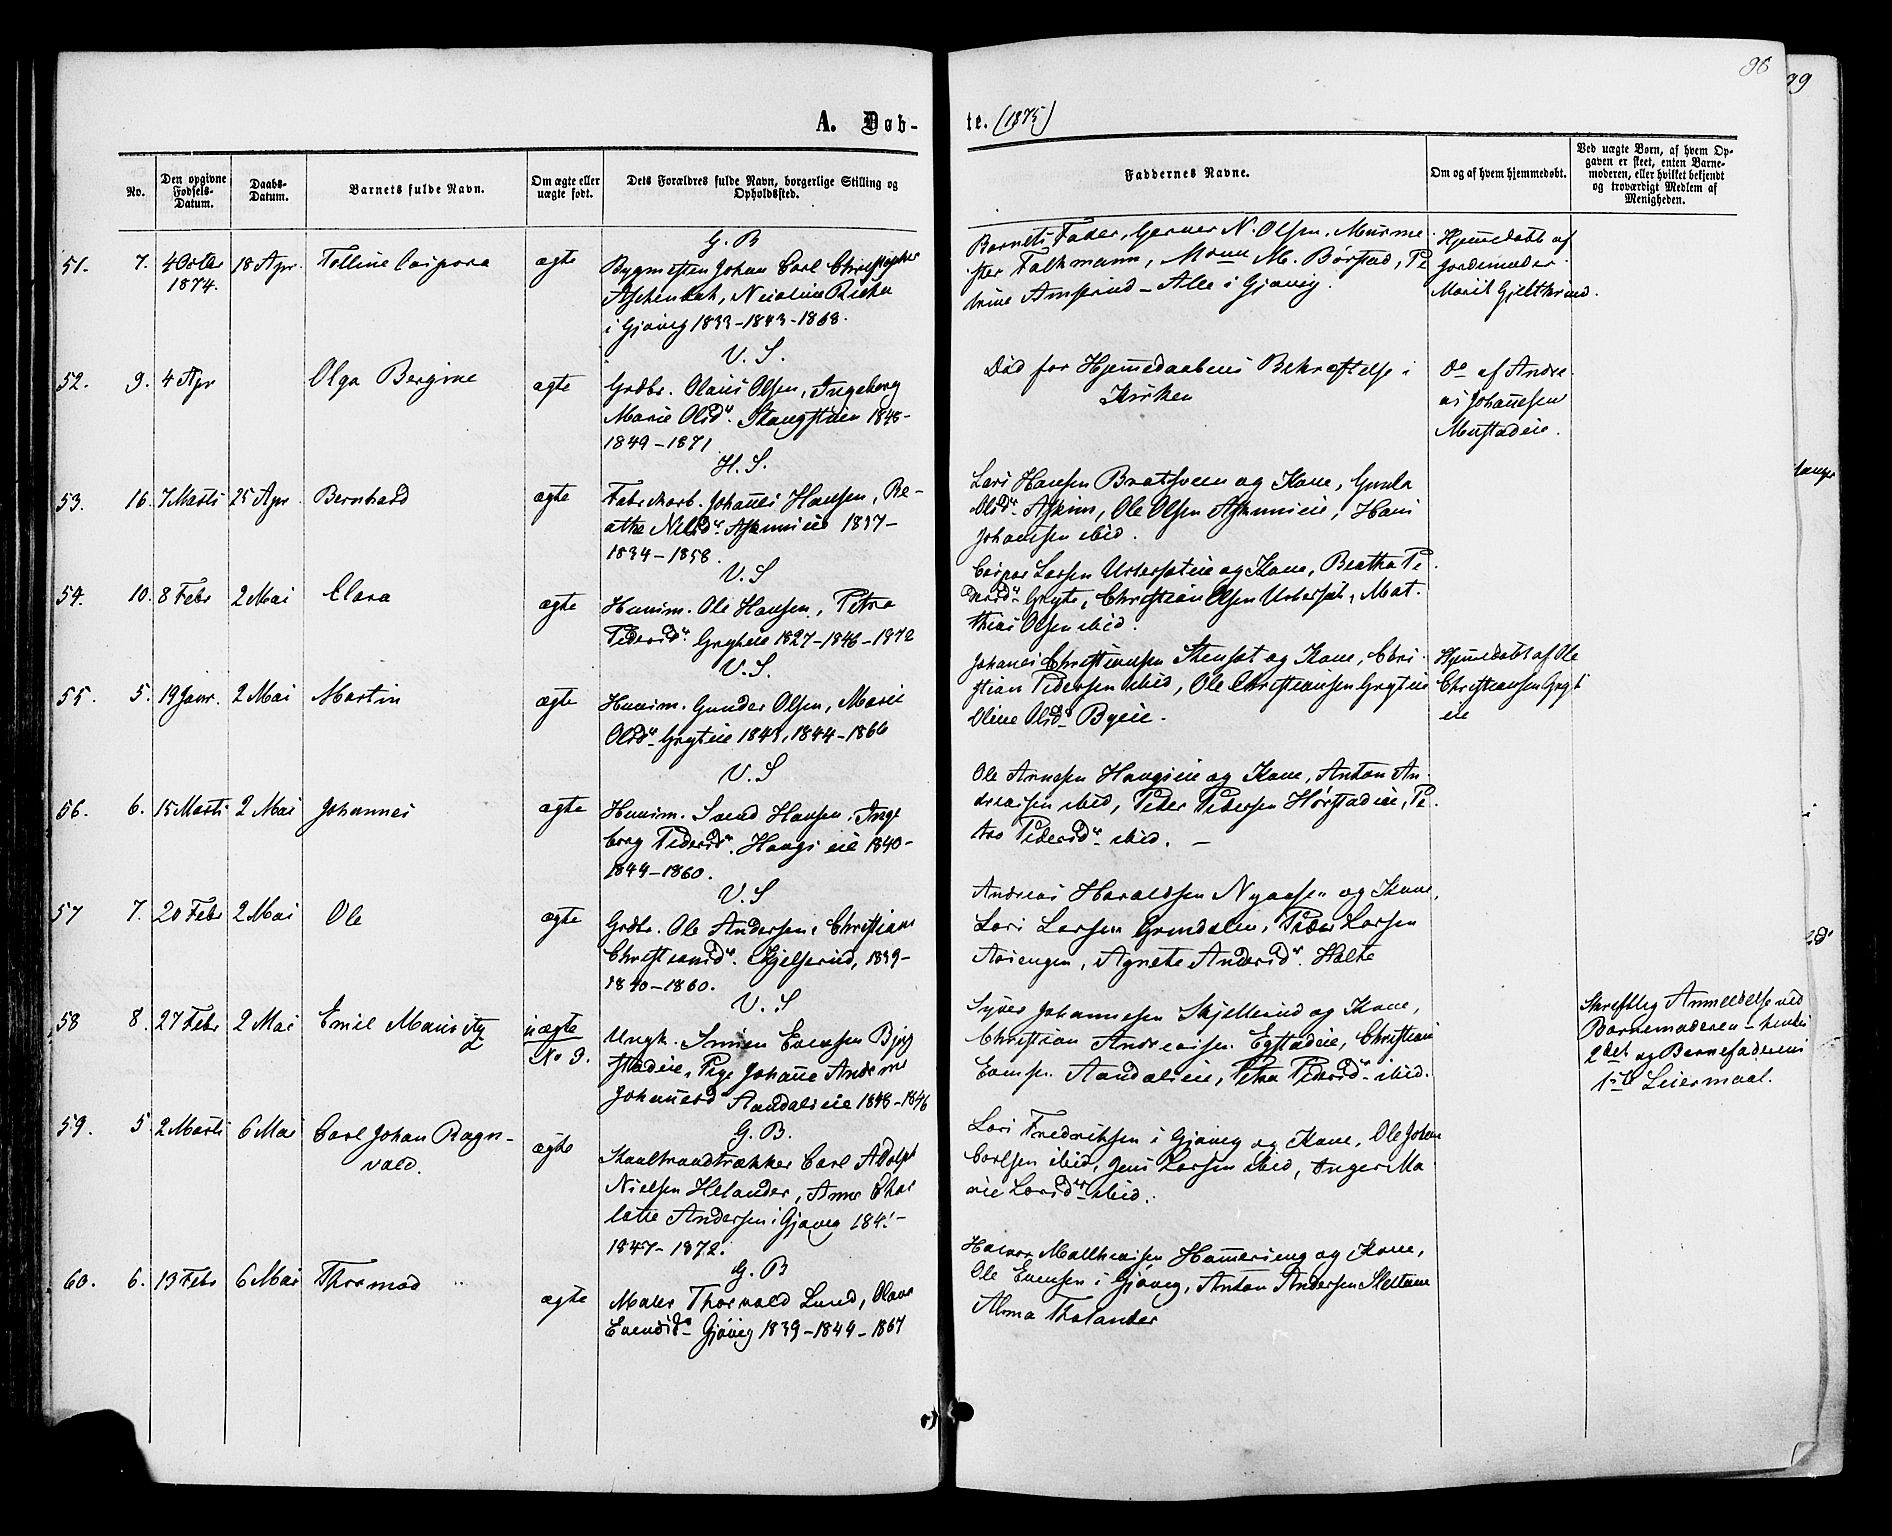 98
99
A. Døb-
te. (1875)
No.
Den opgivne Fødsels-Datum.
Daabs-Datum.
Barnets fulde Navn.
Om ægte eller uægte født.
Dets Forældres fulde Navn, borgerlige Stilling og Opholdssted.
Faddernes Navne.
Om og af hvem hjemmedøbt.
Ved uægte Børn, af hvem Opgaven er skeet, enten Barnemoderen, eller hvilket bekjendt og troværdigt Medlem af Menigheden.
51. 7. 4 Octbr 1874. 18 Apr. Talline Caspara ægte
G. B
Bygmesteren Johan Carl Christopher
Aschenbak, Nicoline
i Gjøvig 1833-1843-1868.
Barnets Fader, Garver N. Olsen, Murme-
ster Falkmann, M. Børstad, Pe
trine Amsrud - Alle i Gjøvig.
Hjemmedøbt af
Jordemoder
Marit
52. 9. 4 Apr Olga Bergine ægte
V. S.
Grdbr. Olaus Olsen, Ingeborg
Marie Olsdr. Skangsteien 1848-
1849-1871
Død før Hjemmedaabens Bekræftelse i
Kirken
Do af Andre
as Johansen
Mustadeie.
53. 16. 7 Marts 25 Apr Bernhard ægte
H. S.
Fabrikarb. Johanes Hansen, Be-
athe Nilsdr. Askimeie 1837-
1834-1858.
Lars Hansen Bratsveen og Kone,
Olsdr. Askim, Ole Olsen Askimeie, Hans
Johansen ibid.
54. 10. 8 Febr 2 Mai Clara ægte
V. S
Huusm. Ole Hansen, Petra
Pedersdr. Gryteie 1827-1846-1872
Caspar Larsen og Kone, Beathe Pe
dersdr Gryte, Christian Olsen, Mat-
thias Olsen ibid.
55. 5. 19 Janr. 2 Mai Martin ægte
V. S.
Huusm. Gunder Olsen, Marie
Olsdr. Gryteie 1843, 1844-1866
Johanes Christiansen Stensæt og Kone, Chri-
stian Pedersen ibid, Ole Christiansen Gryteie
Oline Olsdr Byeie.
Hjemmedøbt af Ole
Christiansen Gryt
eie
56. 6. 15 Marts 2 Mai Johannes ægte
V. S
Huusm. Svend Hansen, Inge
borg Pedersdr. Haugseie 1840-
1844-1860.
Ole Arnesen Haugseie og Kone, Anton An-
dreassen ibid, Peder Pedersen Hørstadeie, Pe-
tra Pedersdr ibid. -
57 7. 20 Febr 2 Mai Ole ægte
V. S
Grdbr. Ole Andersen, Christiane
Christiansdr. Skjelserud, 1839-
1840-1860.
Andreas Haraldsen Nyaasen og Kone,
Lars Larsen Grindalen, Peder Larsen
Aasengen, Agnete Andersdr. Holte
58 8. 27 Febr 2 Mai Emil Mauritz uægte No 9.
V. S
Ungk. Simen Evensen
stadeie, Pige Johane Andrine
Johannesd Aandalseie 1848-1846
Syver Johannesen Skjellerud og Kone,
Christian Andreassen Egstadeie, Christian
Evensen Aandalseie, Petra Pedersdr ibid.
Skriftlig Anmeldelse ved
Barnemoderen - hendes
2det og Barnefaderens
1ste Leiermaal.
59. 5. 2 Marts 6 Mai Carl Johan Ragn-
vald. ægte
G. B.
Staaltraadtrækker Carl Adolph
Nielsen Helander, Anne Char
lotte Andersen i Gjøvig 184.-
1847-1872.
Lars Fredriksen i Gjøvig og Kone, Ole Johan
Carlsen ibid, Jens Larsen ibid, Inger Ma-
rie Larsdr ibid.
60. 6. 13 Febr 6 Mai Thormod ægte
G. B
Maler Thorvald Lund, Olava
Evensdr Gjøvig 1839-1844-1867
Halvor Matthiasen Hammerseng og Kone,
Ole Evensen i Gjøvig, Anton Andersen
Alma Tholander